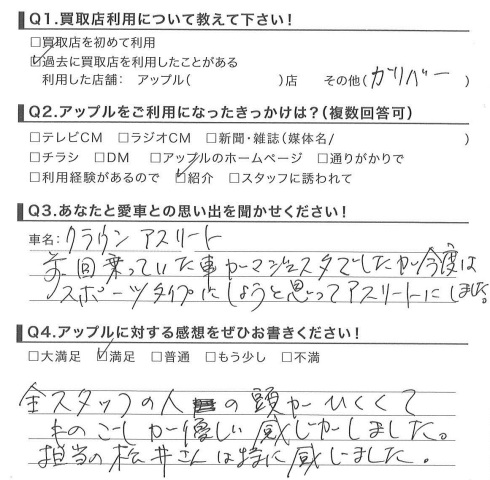 Q1.買取店利用について教えて下さい!
□買取店を初めて利用
□過去に買取店を利用したことがある
利用した店舗: アップル( )店 その他( ガリバー )
Q2.アップルをご利用になったきっかけは?(複数回答可)
□テレビCM □ラジオCM □新聞・雑誌(媒体名/ )
□チラシ □DM □アップルのホームページ □通りがかりで
□利用経験があるので □紹介 □スタッフに誘われて
Q3.あなたと愛車との思い出を聞かせください!
車名:クラウン アスリート
前回乗っていた車がマジェスタでしたが今度は
スポーツタイプにしようと思ってアスリートにしました。
Q4.アップルに対する感想をぜひお書きください!
□大満足 □満足 □普通 □もう少し □不満
全スタッフの人の頭がひくくて
ものごしが優しい感じがしました。
担当の松井さんは特に感じました。